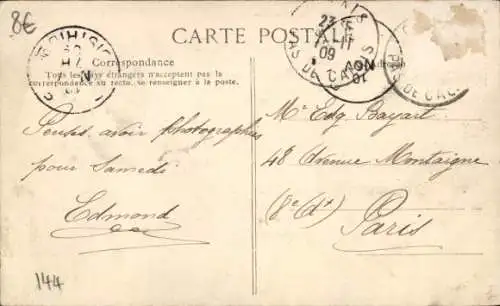 8€
CARTE POSTALE
Correspondance
Tous les pays étrangers n'acceptent pas la
correspondance au recto, se renseigner à la poste.
PAS DE CALAIS
23
11
09
Pensez avoir photographies
pour Samedi
Edmond
144
Mr Edg Bayart
48 Avenue Montaigne
(8e (dt)
Paris